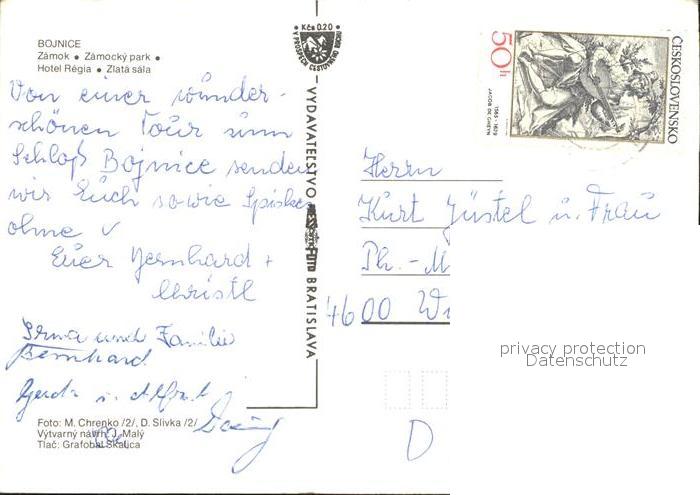 BOJNICE
Zámok • Zámocký park •
Hotel Régia • Zlatá sála
Von einer wunder-
schönen Tour zum
Schloß Bojnice senden
wir Euch sowie
ohne
Euer Bernhard +
Christl
Irma und Familie
Bernhard
Gerda u.
Foto: M. Chrenko /2/, D. Slivka /2/
Výtvarný návrh: J. Malý
Tlač: Grafobal Skalica
Kčs 0,20
V PROSPECH CESTOVNÉHO RUCHU
VYDAVATEĽSTVO
FOTO BRATISLAVA
ČESKOSLOVENSKO
50 h
JACOB DE GHEYN
1565-1629
Herrn
Kurt Jüstel u. Frau
Ph.-M
4600
D
privacy protection
Datenschutz